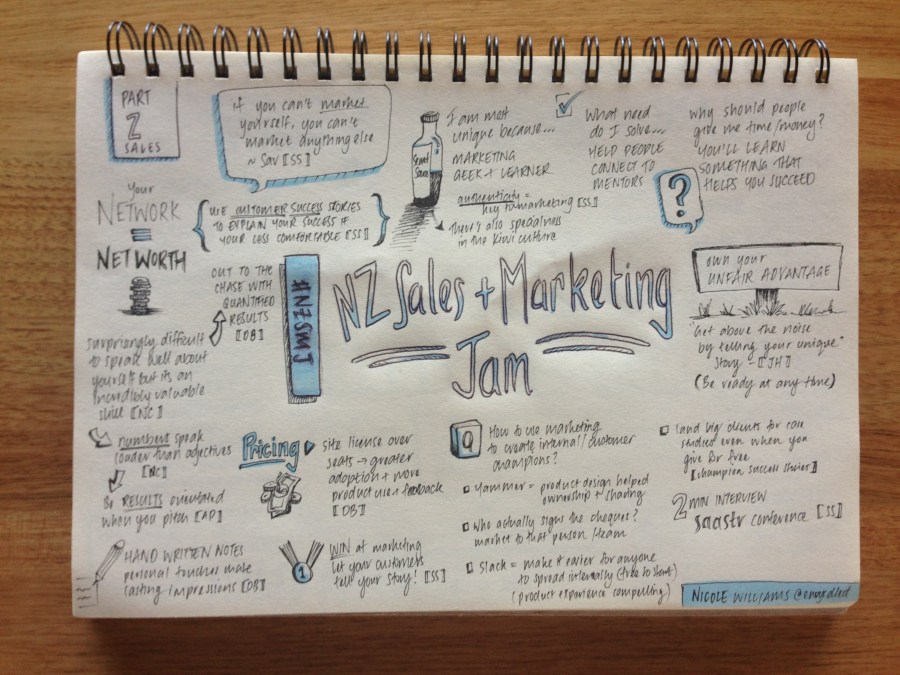 PART
2
SALES
if you can't market
yourself, you can't
market anything else
~ Sav [SS]
Secret
Sauce
I am most
unique because...
MARKETING
GEEK + LEARNER
authenticity =
key to marketing [SS]
There's also specialness
in the kiwi culture
What need
do I solve...
HELP PEOPLE
CONNECT TO
MENTORS
why should people
give me time/money?
YOU'LL LEARN
SOMETHING THAT
HELPS YOU SUCCEED
?
Your
NETWORK
=
NET WORTH
USE CUSTOMER SUCCESS STORIES
TO EXPLAIN YOUR SUCCESS IF
YOUR LESS COMFORTABLE [SS]
CUT TO THE
CHASE WITH
QUANTIFIED
RESULTS
[DB]
#NZSMJ
NZ Sales + Marketing
Jam
own your
UNFAIR ADVANTAGE
"Get above the noise
by telling your unique"
story - [JH]
(Be ready at any time)
surprisingly difficult
to speak well about
yourself but its an
incredibly valuable
skill [NC]
numbers speak
louder than adjectives
[NC]
Be RESULTS orientated
when you pitch [AP]
HAND WRITTEN NOTES
personal touches make
lasting impressions [DB]
Pricing
site license over
seats → greater
adoption + more
product use + feedback
[DB]
1
WIN at marketing
let your customers
tell your story! [SS]
Q
How to use marketing
to create internal/customer
champions?
Yammer = product design helped
ownership + sharing
Who actually signs the cheques?
market to that person/team
Slack = make it easier for anyone
to spread internally (free to start)
(product experience compelling)
land big clients for case
studies even when you
give for free
[champion success stories]
2 MIN INTERVIEW
saastr conference [SS]
NICOLE WILLIAMS